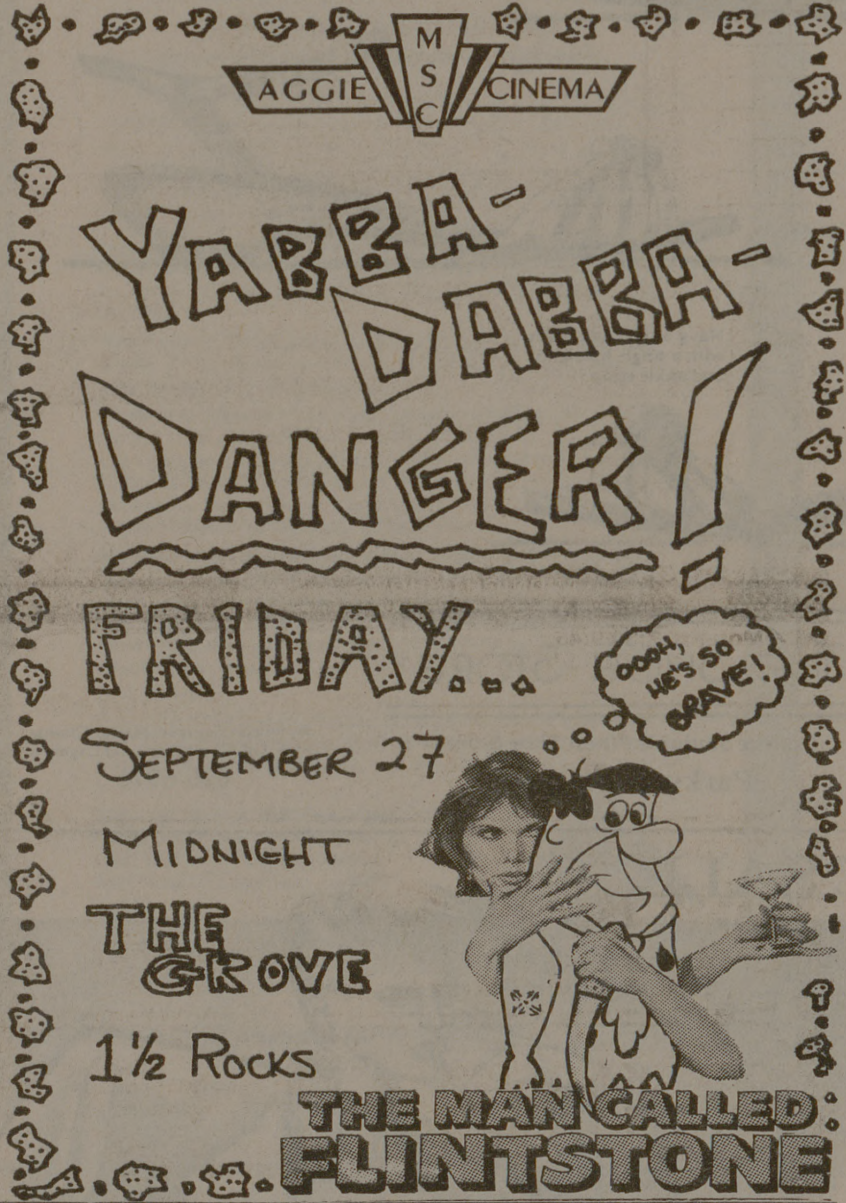 AGGIE MSC CINEMA
YABBA-
DABBA-
DANGER!
FRIDAY...
OOOH,
HE'S SO
BRAVE!
SEPTEMBER 27
MIDNIGHT
THE
GROVE
1½ ROCKS
THE MAN CALLED
FLINTSTONE